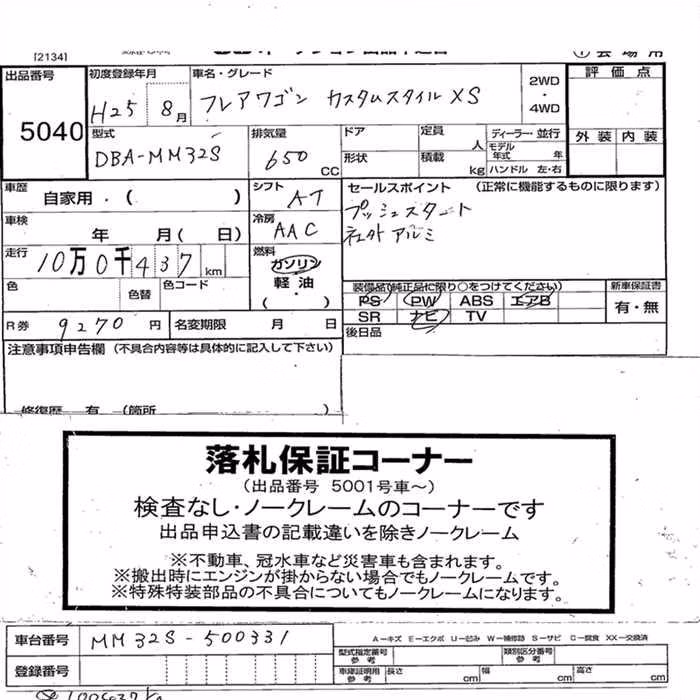 [2134]
出品番号 初度登録年月 車名・グレード 2WD・4WD 評価点
5040 H25 8月 フレアワゴン カスタムスタイルXS
外装 内装
型式 排気量 ドア 定員 人 ディーラー 並行
DBA-MM32S 650cc 形状 積載 kg モデル年式 年 ハンドル 左・右
車歴 自家用・( ) シフト AT セールスポイント (正常に機能するものに限ります)
プッシュスタート
社外アルミ
車検 年 月( 日) 冷房 AAC
走行 10万0千437km 燃料 ガソリン 軽油・( )
色 色替 色コード
装備品(純正品に限り○をつけてください) 新車保証書
PS PW ABS エアB 有・無
SR ナビ TV
R券 9270円 名変期限 月 日 後日品
注意事項申告欄 (不具合内容等は具体的に記入して下さい)
修復歴 有 (箇所 )
落札保証コーナー
(出品番号 5001号車~)
検査なし・ノークレームのコーナーです
出品申込書の記載違いを除きノークレーム
※不動車、冠水車など災害車も含まれます。
※搬出時にエンジンが掛からない場合でもノークレームです。
※特殊特装部品の不具合についてもノークレームになります。
車台番号 MM32S-500331
A-キズ E-エクボ U-凹み W-補修跡 S-サビ C-腐食 XX-交換済
型式指定番号 参考 類別区分番号 参考
登録番号 車検証明用 参考 長さ cm 幅 cm 高さ cm